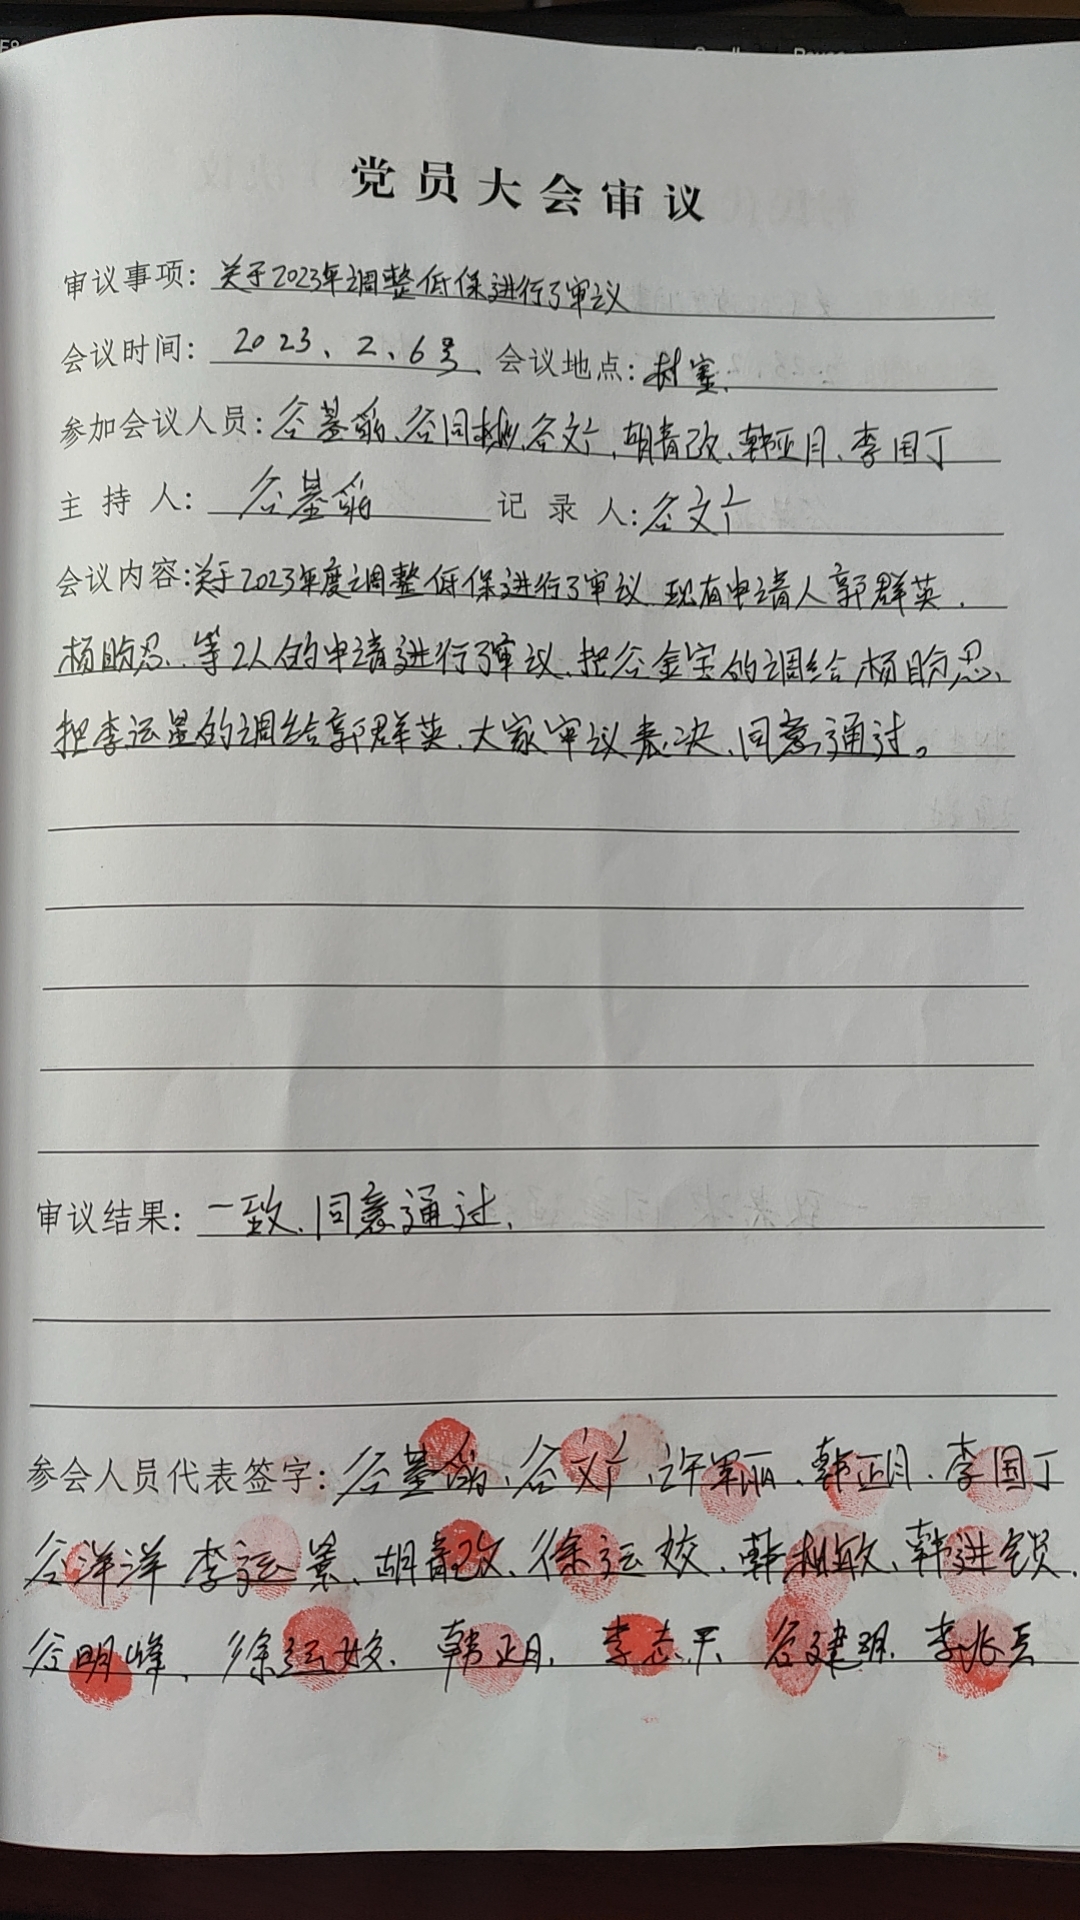 党员大会审议
审议事项：关于2023年调整低保进行了审议
会议时间：2023、2、6号 会议地点：村室
参加会议人员：谷基 、谷同 、谷文广、胡青改、韩正月、李国丁
主持人：谷基 记录人：谷文广
会议内容：关于2023年度调整低保进行了审议、现有申请人郭群英、
杨 忍、等2人的申请进行了审议、把谷金宝的调给杨 忍、
把李运星的调给郭群英、大家审议表决、同意通过。
审议结果：一致、同意通过、
参会人员代表签字：谷基 、谷文广、许军丽、韩正月、李国丁
谷洋洋 李运 、胡青改、徐运姣、韩相敏、韩进锁、
谷明峰、徐运姣、韩正月、李志平、谷建 、李振兵